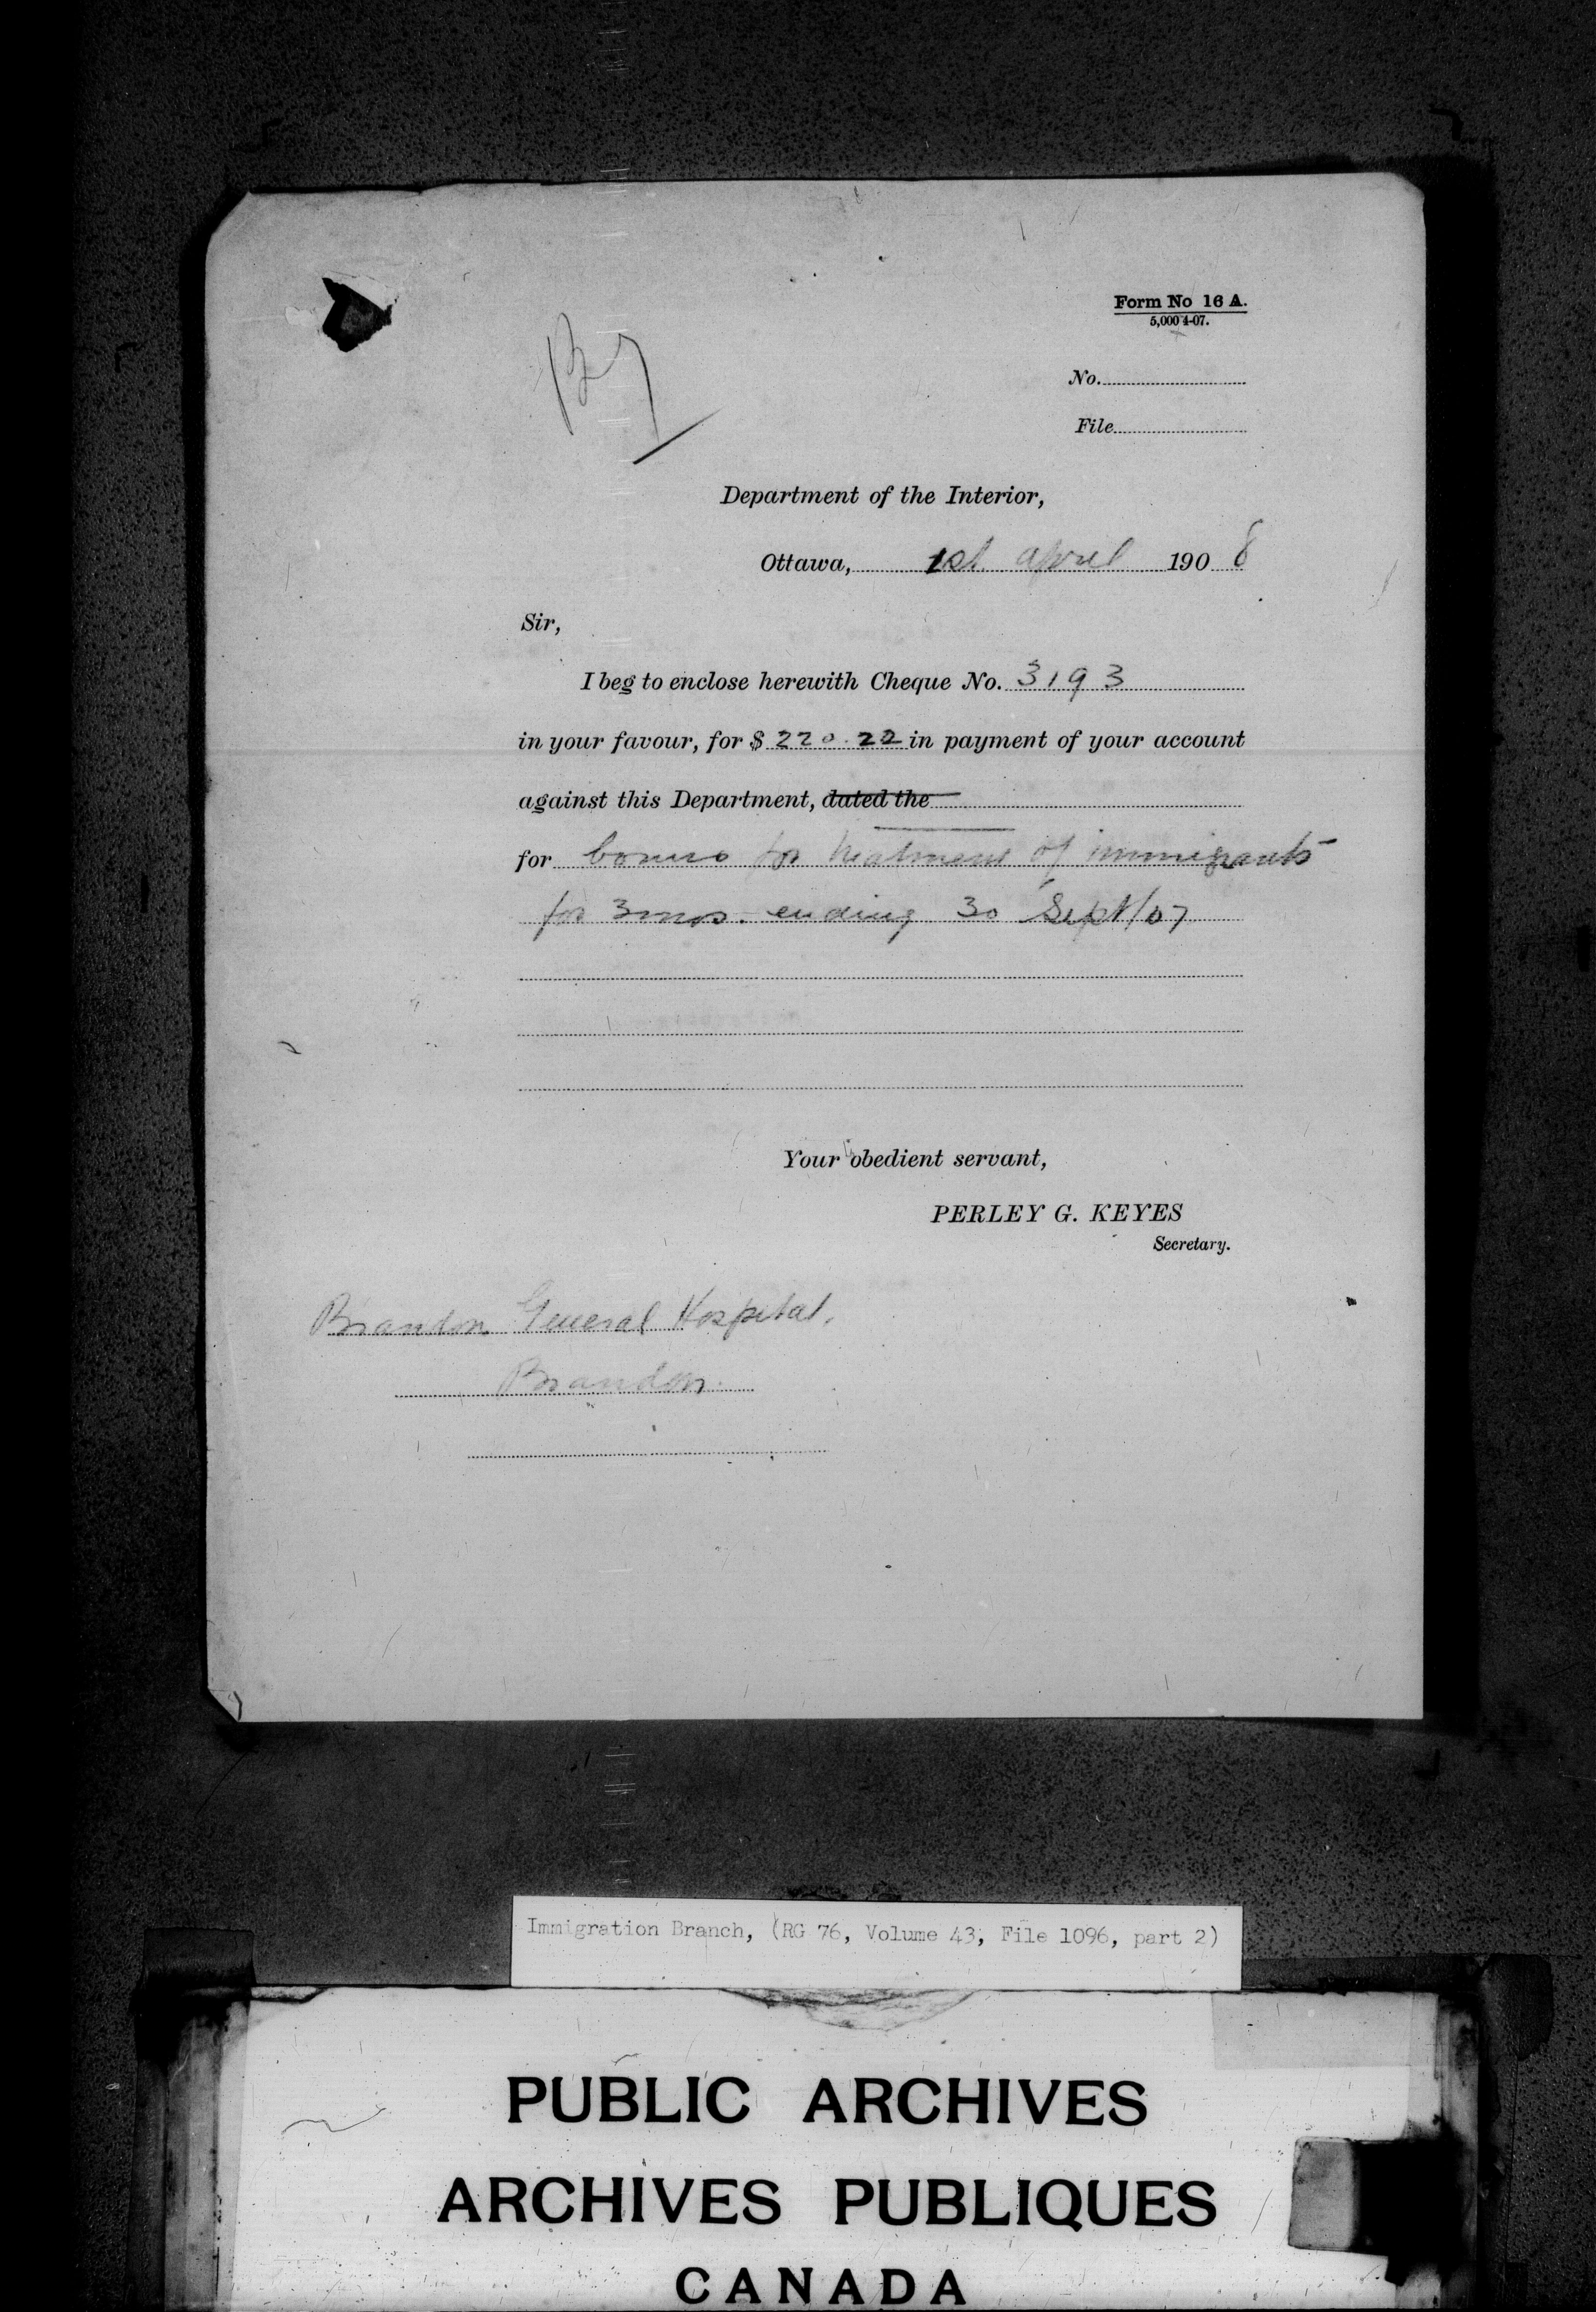 Form No 16 A.
5,000 4-07.
No.
File
Department of the Interior,
Ottawa, 1st. April 1908
Sir,
I beg to enclose herewith Cheque No. 3193
in your favour, for $ 220.22 in payment of your account
against this Department, dated the
for bonus for treatment of immigrants
for 3 mos. ending 30 Sept/07
Your obedient servant,
PERLEY G. KEYES
Secretary.
Brandon General Hospital,
Brandon.
Immigration Branch, (RG 76, Volume 43, File 1096, part 2)
PUBLIC ARCHIVES
ARCHIVES PUBLIQUES
CANADA